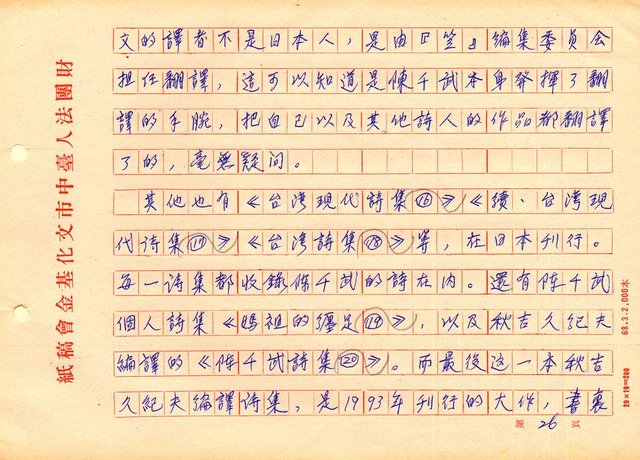 文的譯者不是日本人，是由『笠』編集委员会
担任翻譯，這可以知道是陳千武本身發揮了翻
譯的手腕，把自己以及其他詩人的作品都翻譯
了的，毫無疑问。
其他也有《台湾現代詩集⑯》《續、台湾現
代诗集⑰》《台湾詩集⑱》等，在日本刊行。
每一诗集都收錄陈千武的詩在内。還有陈千武
個人詩集《媽祖的纏足⑲》，以及秋吉久紀夫
編譯的《陈千武詩集⑳》。而最後這一本秋吉
久紀夫編譯诗集，是1993年刊行的大作，書裏
第26頁
財團法人臺中市文化基金會稿紙
68.3.2,000本
20×10=200